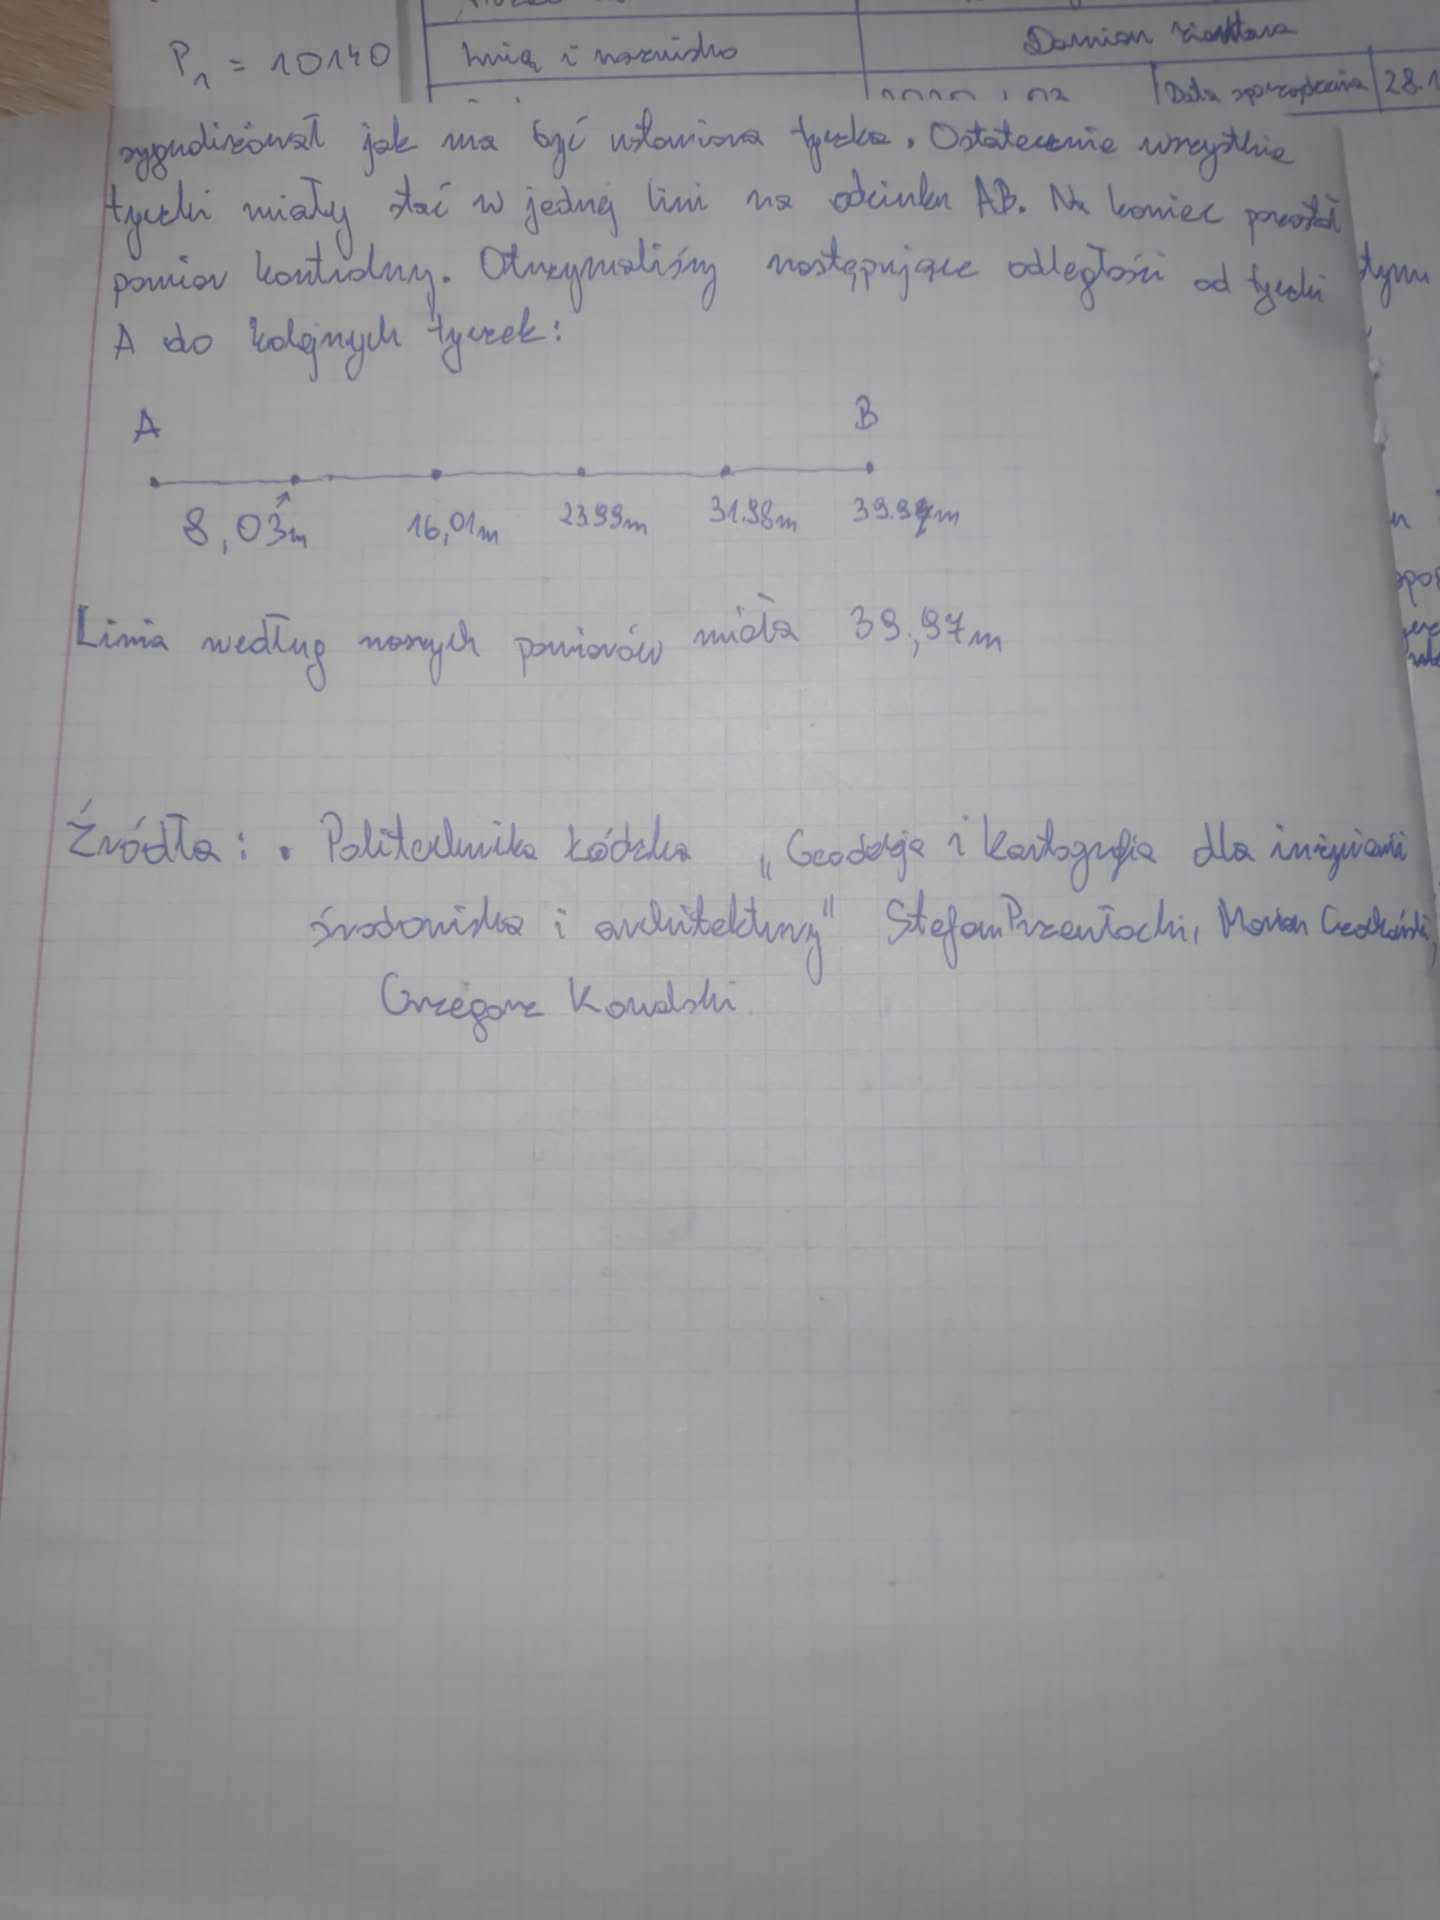 P₁ = 10140
Imię i nazwisko
Damian
Data sporządzenia
28.1
sygnalizował jak ma być ustawiona tyczka. Ostatecznie wszystkie
tyczki miały stać w jednej lini na odcinku AB. Na koniec pozostał
pomiar kontrolny. Otrzymaliśmy następujące odległości od tyczki
A do kolejnych tyczek:
A B
8,03m 16,01m 23.99m 31.98m 39.97m
Linia według naszych pomiarów miała 39,97m
Źródła: • Politechnika Łódzka „Geodezja i Kartografia dla inżynierii
środowiska i architektury" Stefan Przewłocki, Marian Czochański,
Grzegorz Kowalski